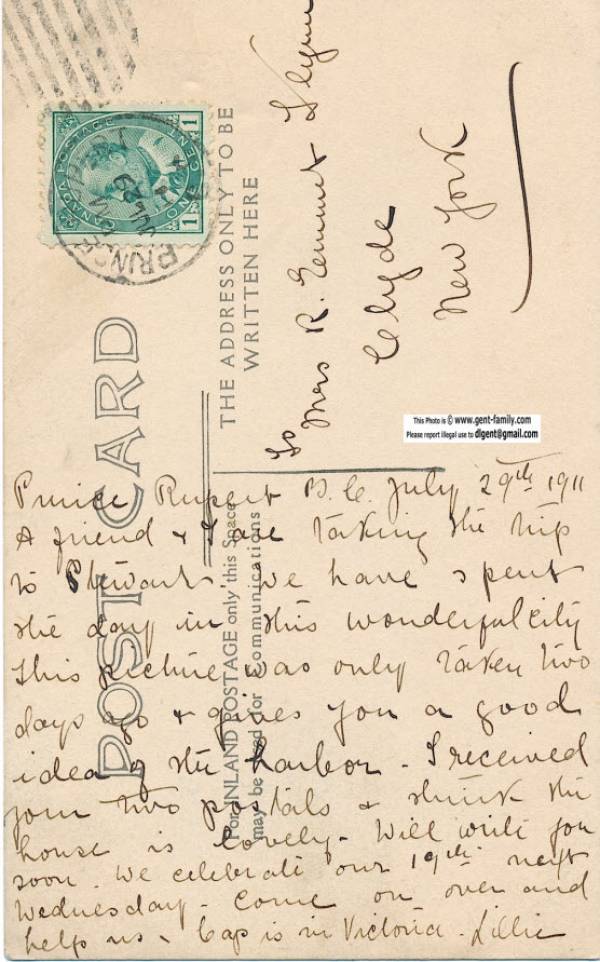 CANADA POSTAGE
ONE CENT
1 1
PRINCE
JUL 29
POST CARD
THE ADDRESS ONLY TO BE
WRITTEN HERE
For INLAND POSTAGE only this Space
may be used for Communications
To
Mrs R. Emmet Flynn
Clyde
New York
This Photo is © www.gent-family.com
Please report illegal use to dlgent@gmail.com
Prince Rupert B.C. July 29th 1911
A friend & I are taking the trip
to Stewart we have spent
the day in this wonderful city
This picture was only taken two
days ago & gives you a good
idea of the harbor - I received
your two postals & think the
house is lovely - Will write you
soon. We celebrate our 19th next
Wednesday - Come on over and
help us - Cap is in Victoria - Lillie